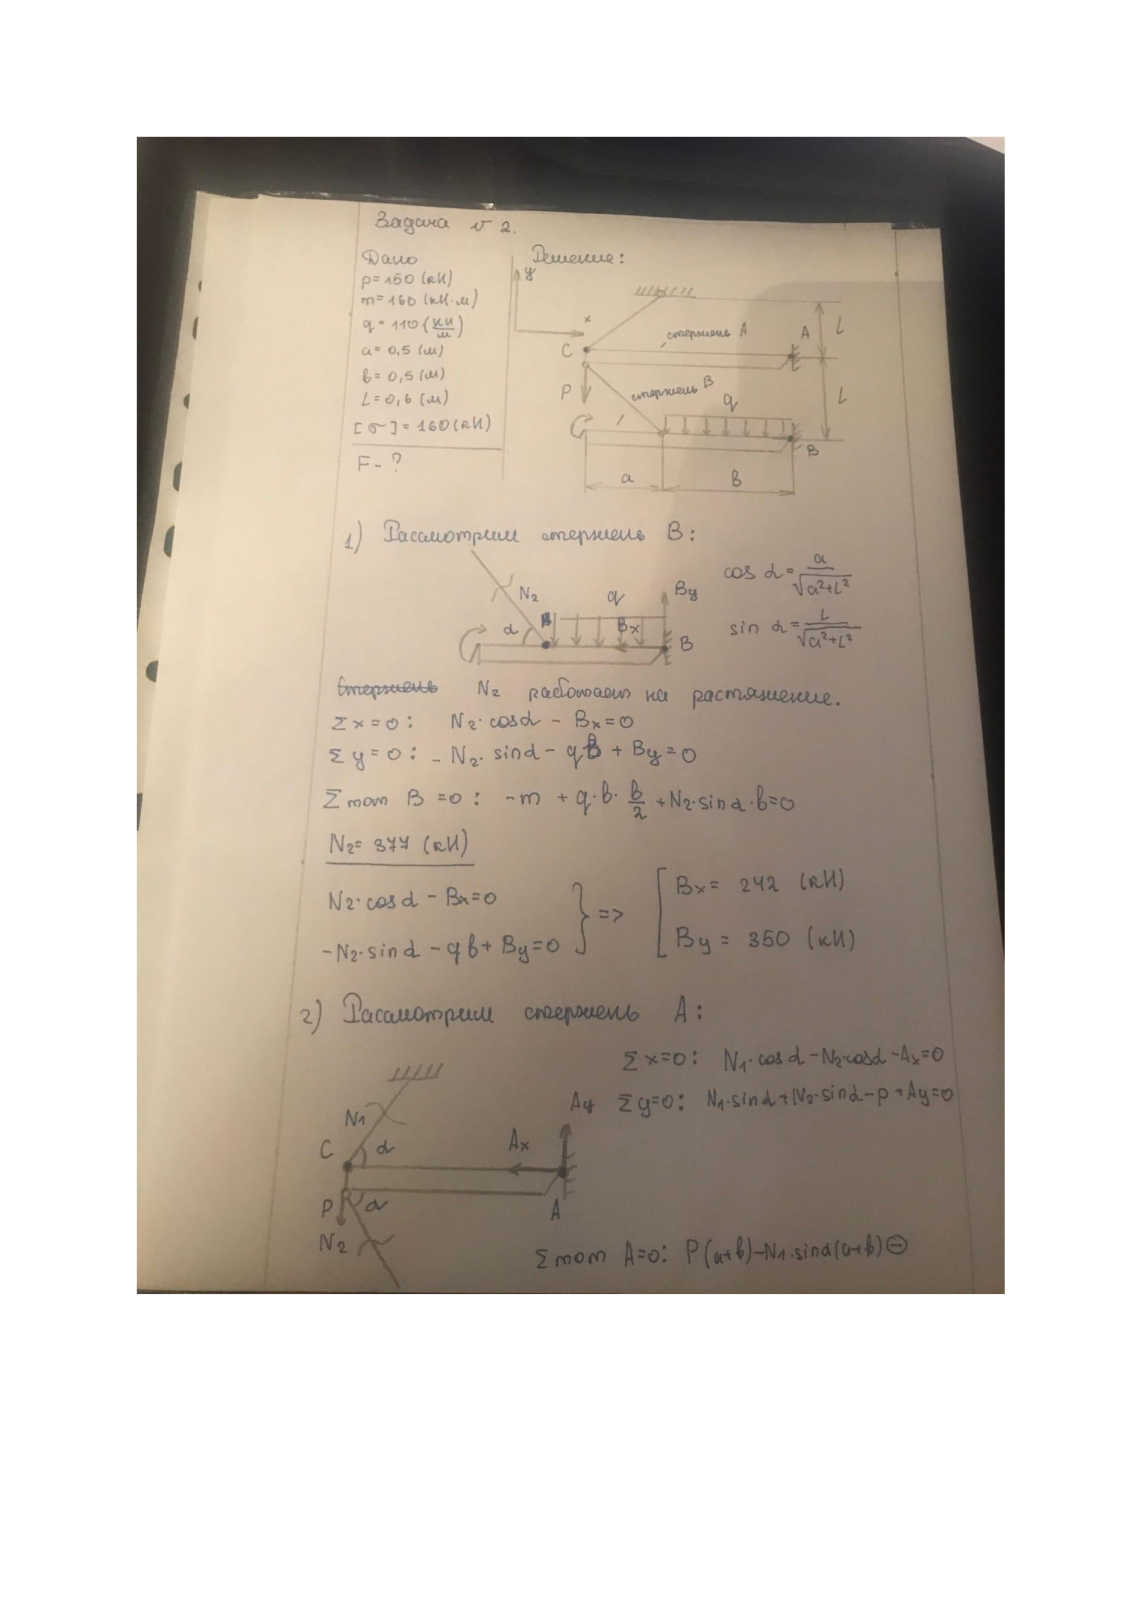 Задача № 2.
Дано
p=160 (кН)
m=160 (кН·м)
q=110 (кН/м)
a=0,5 (м)
b=0,5 (м)
L=0,6 (м)
[σ]=160(кН)
F-?
Решение:
y
x
стержень A
A
L
C
P
стержень B
q
L
B
a
b
1) Рассмотрим стержень B:
N₂
q
By
α
Bx
B
cos α = a/√(a²+L²)
sin α = L/√(a²+L²)
N₂ работает на растяжение.
Σx=0: N₂·cosα - Bx=0
Σy=0: -N₂·sinα - qb + By=0
Σmom B=0: -m + q·b·b/2 + N₂·sinα·b=0
N₂= 377 (кН)
N₂·cosα - Bx=0
-N₂·sinα - qb + By=0
} => [
Bx= 242 (кН)
By = 350 (кН)
2) Рассмотрим стержень A:
Σx=0: N₁·cosα - N₂cosα - Ax=0
Σy=0: N₁·sinα + N₂·sinα - p + Ay=0
Ay
N₁
C
α
Ax
P
α
A
N₂
Σmom A=0: P(a+b) - N₁·sinα(a+b) ⊖